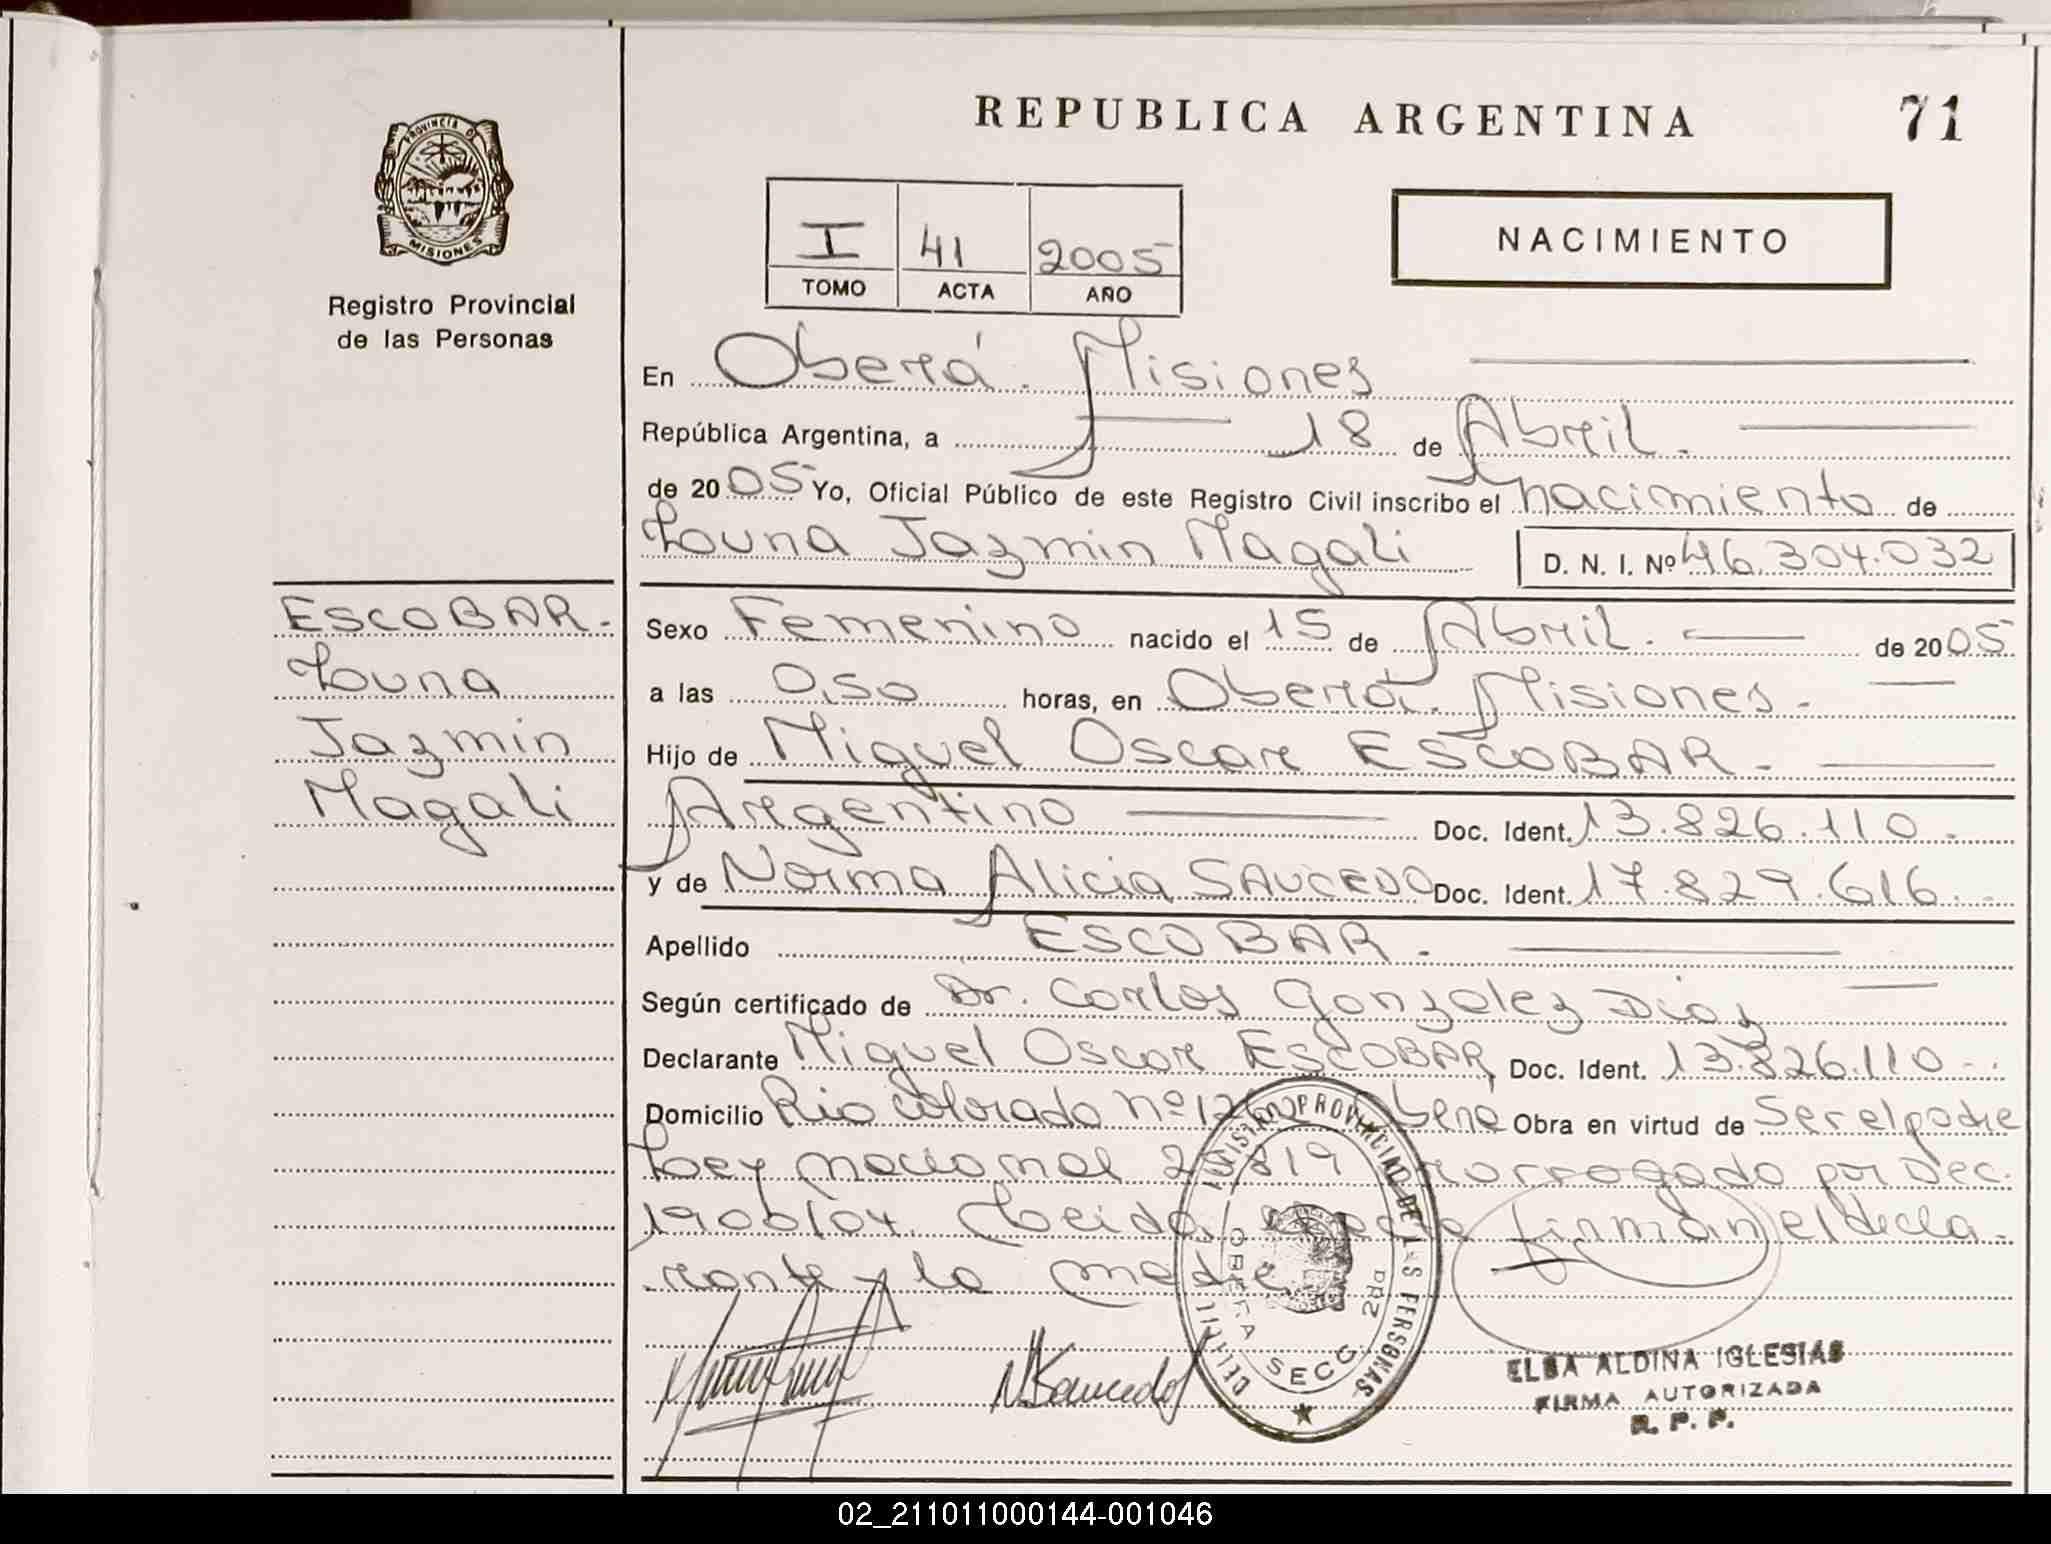 REPUBLICA ARGENTINA
71
PROVINCIA D
MISIONES
Registro Provincial
de las Personas
I 41 2005
TOMO ACTA AÑO
NACIMIENTO
En Oberá. Misiones
República Argentina, a 18 de Abril.
de 2005 Yo, Oficial Público de este Registro Civil inscribo el nacimiento de
Louna Jazmin Magali D. N. I. Nº 46.304.032
ESCOBAR.
Louna
Jazmin
Magali
Sexo Femenino nacido el 15 de Abril. de 2005
a las 0,50 horas, en Oberá. Misiones.
Hijo de Miguel Oscar ESCOBAR.
Argentino Doc. Ident. 13.826.110.
y de Norma Alicia SAUCEDO Doc. Ident. 17.829.616.
Apellido ESCOBAR.
Según certificado de Dr. Carlos Gonzalez Diaz
Declarante Miguel Oscar ESCOBAR, Doc. Ident. 13.826.110.
Domicilio Rio Colorado nº Oberá Obra en virtud de Ser el padre
Ley nacional prorrogado por Dec.
1900/04. Leida el acta firman el decla.
rante y la madre
N Saucedo
REGISTRO PROVINCIAL DE LAS PERSONAS
OBERA SECC. 2da
ELSA ALDINA IGLESIAS
FIRMA AUTORIZADA
R. P. P.
02_211011000144-001046